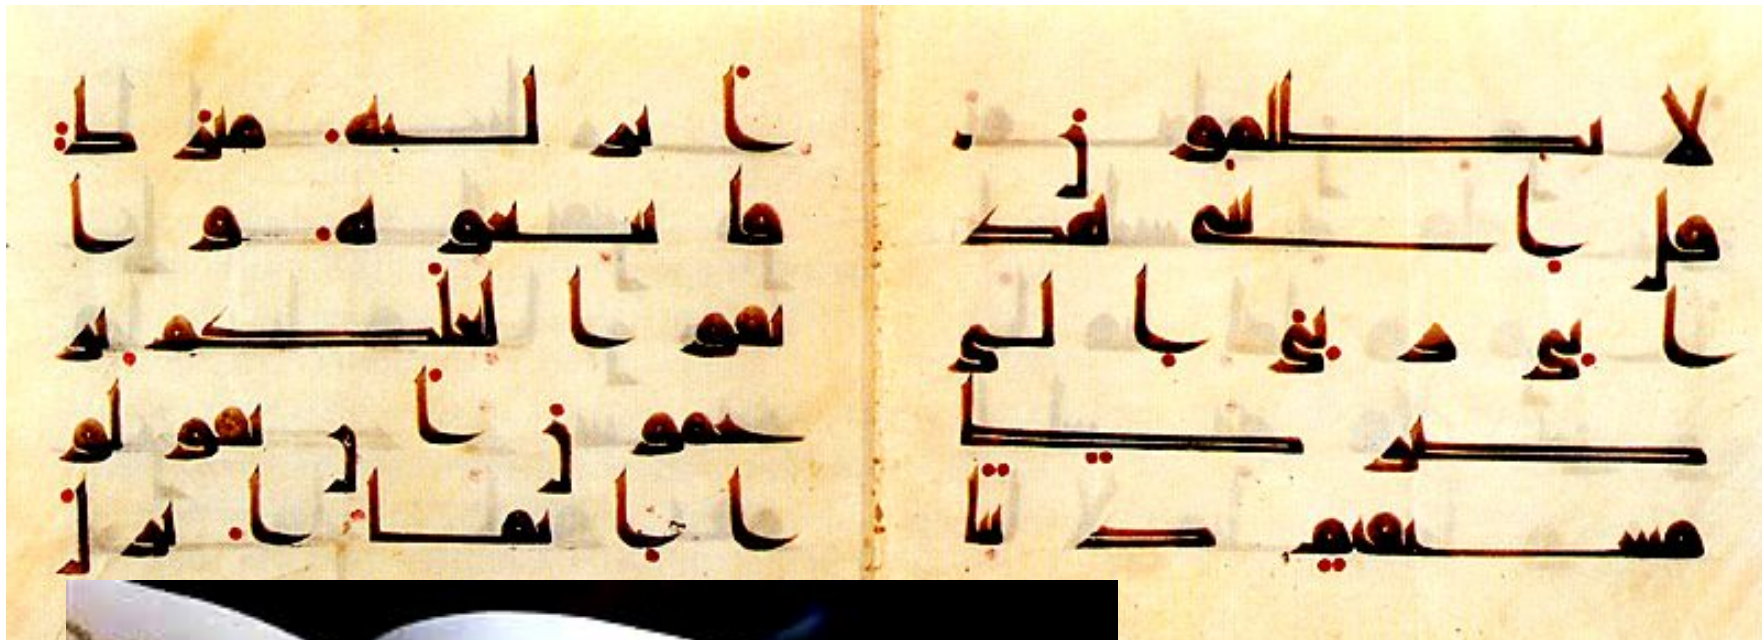 لا يظلمون
قل إنني هد
اني ربي إلى
صرط
مستقيم دينا
أنزلنه مبرك
فاتبعوه وا
تقوا لعلكم تر
حمون أن تقولو
ا إنما أنزل